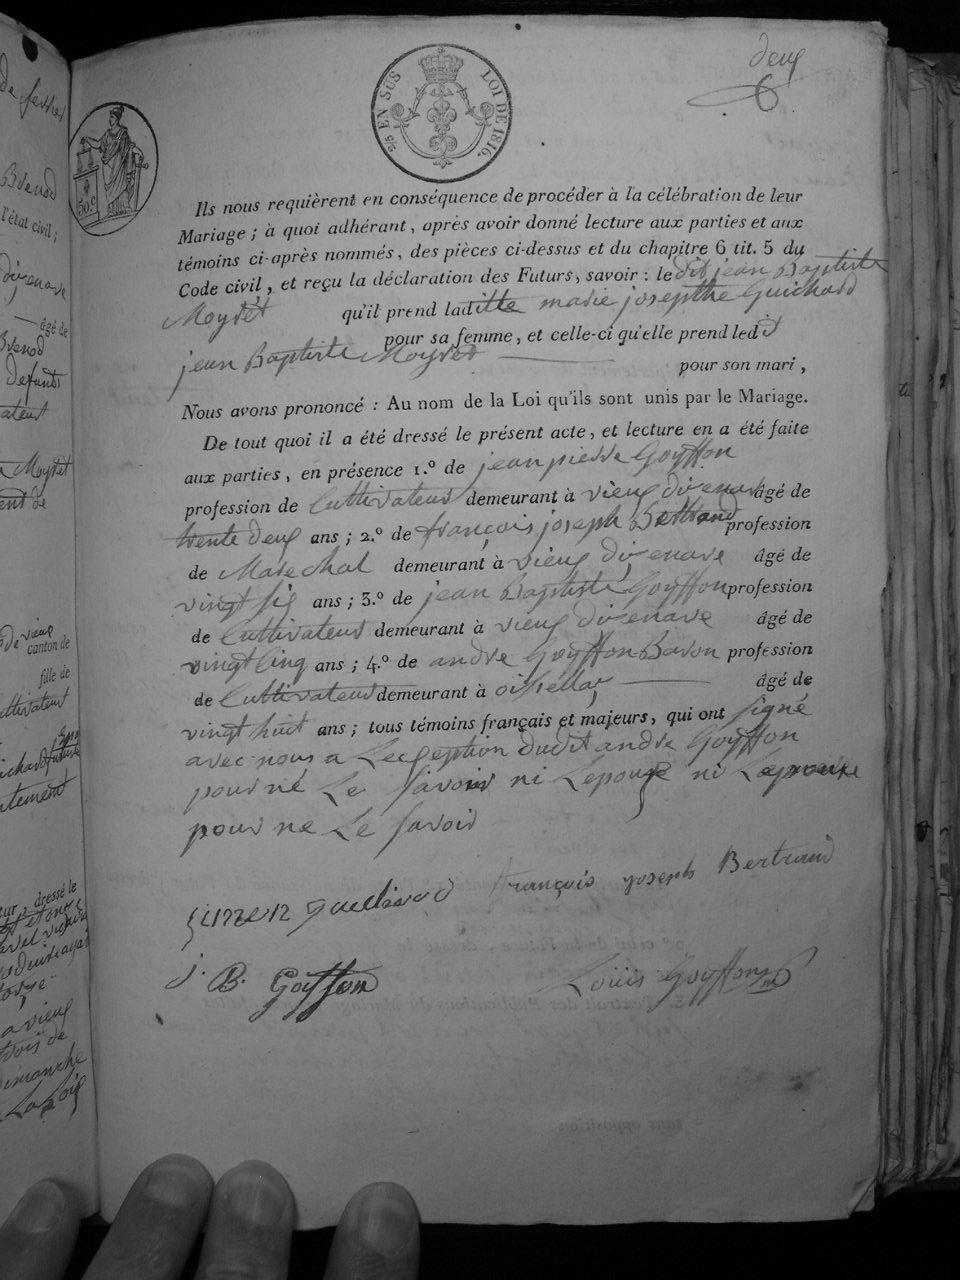 deux
6
25 EN SUS LOI DE 1816.
50.c
Ils nous requièrent en conséquence de procéder à la célébration de leur
Mariage ; à quoi adhérant, après avoir donné lecture aux parties et aux
témoins ci-après nommés, des pièces ci-dessus et du chapitre 6 tit. 5 du
Code civil, et reçu la déclaration des Futurs, savoir : le dit jean Baptiste
Moyret qu'il prend laditte marie josepthe Guichard
pour sa femme, et celle-ci qu'elle prend ledit
jean Baptiste Moyret pour son mari,
Nous avons prononcé : Au nom de la Loi qu'ils sont unis par le Mariage.
De tout quoi il a été dressé le présent acte, et lecture en a été faite
aux parties, en présence 1.º de jean pierre Goyffon
profession de Cultivateur demeurant à vieux dizenave âgé de
trente deux ans ; 2.º de françois joseph Bertrand profession
de Marechal demeurant à vieux dizenave âgé de
vingt six ans ; 3.º de jean Baptiste Goyffon profession
de Cultivateur demeurant à vieux dizenave âgé de
vingt Cinq ans ; 4.º de andre Goyffon Baron profession
de Cultivateur demeurant à oissellaz âgé de
vingt huit ans ; tous témoins français et majeurs, qui ont signé
avec nous a Lexception dudit andre Goyffon
pour né Le Savoir ni Lepoux ni Lepouse
pour ne Le Savoir
françois joseph Bertrand
j. B. Goyffon
Louis Goyffon
de festes
Brenod
l'état civil ;
dizenave
âgé de
Brenod
defunt
Moyret
de vieux
canton de
fille de
cultivateur
dressé le
a vieux
dimanche
La Loix